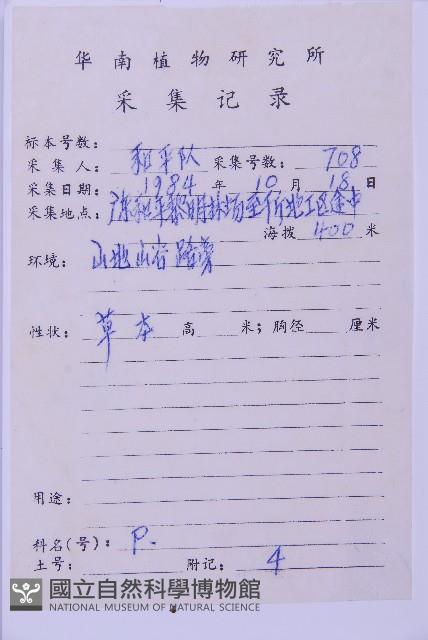 华南植物研究所
采集记录
标本号数：
采集人： 粗采队 采集号数： 708
采集日期： 1984 年 10 月 18 日
采集地点： 林场至 地工区途中
海拔 400 米
环境： 山地山谷路旁
性状： 草本 高 米； 胸径 厘米
用途：
科名(号)： P.
土号： 附记： 4
國立自然科學博物館
NATIONAL MUSEUM OF NATURAL SCIENCE